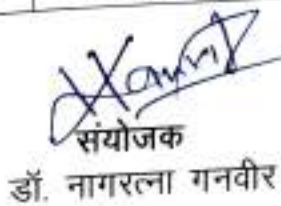 संयोजक
डॉ. नागरत्ना गनवीर